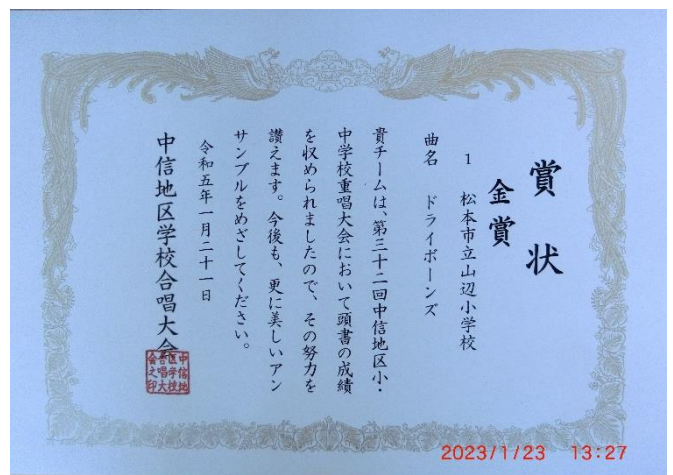 賞状
金賞
1 松本市立山辺小学校
曲名 ドライボーンズ
貴チームは、第三十二回中信地区小・
中学校重唱大会において頭書の成績
を収められましたので、その努力を
讃えます。今後も、更に美しいアン
サンブルをめざしてください。
令和五年一月二十一日
中信地区学校合唱大会
中信地
区学校
合唱大
会之印
2023/1/23 13:27